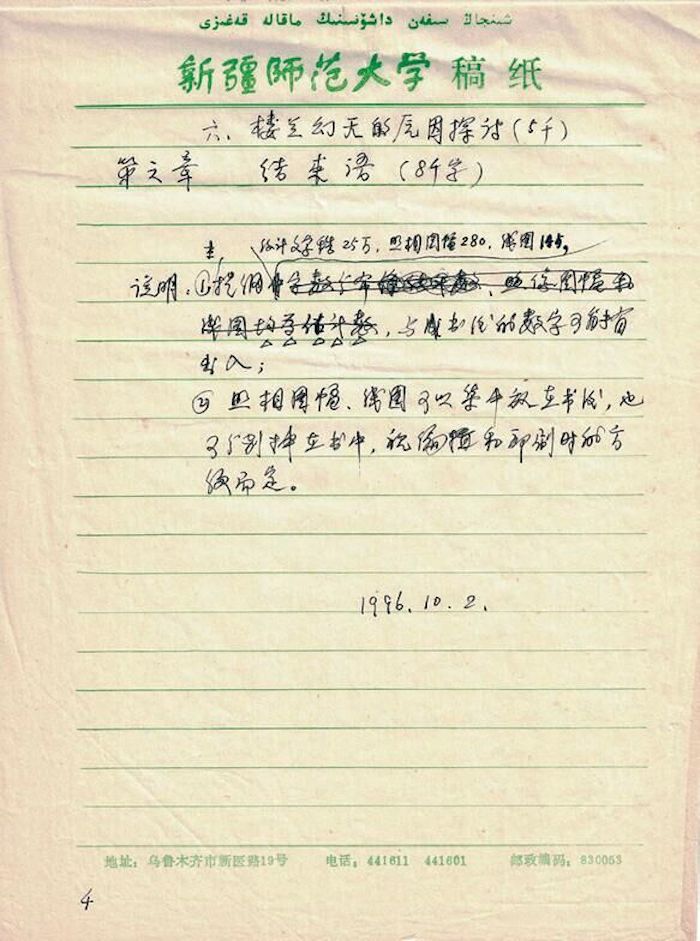 شىنجاڭ سىفەن داشۆسىنىڭ ماقالە قەغىزى
新疆师范大学 稿纸
六、楼兰幻灭的原因探讨(5千)
第六章 结束语(8千字)
共计文字稿25万,照相图幅280,线图145。
说明:①提纲中字数 照像图幅和
线图均是估计数,与成书后的数字可能有
出入;
② 照相图幅、线图可以集中放在书后,也
可分别插在书中,视编辑和印刷时的方
便而定。
1996.10.2.
地址:乌鲁木齐市新医路19号 电话:441611 441601 邮政编码:830053
4